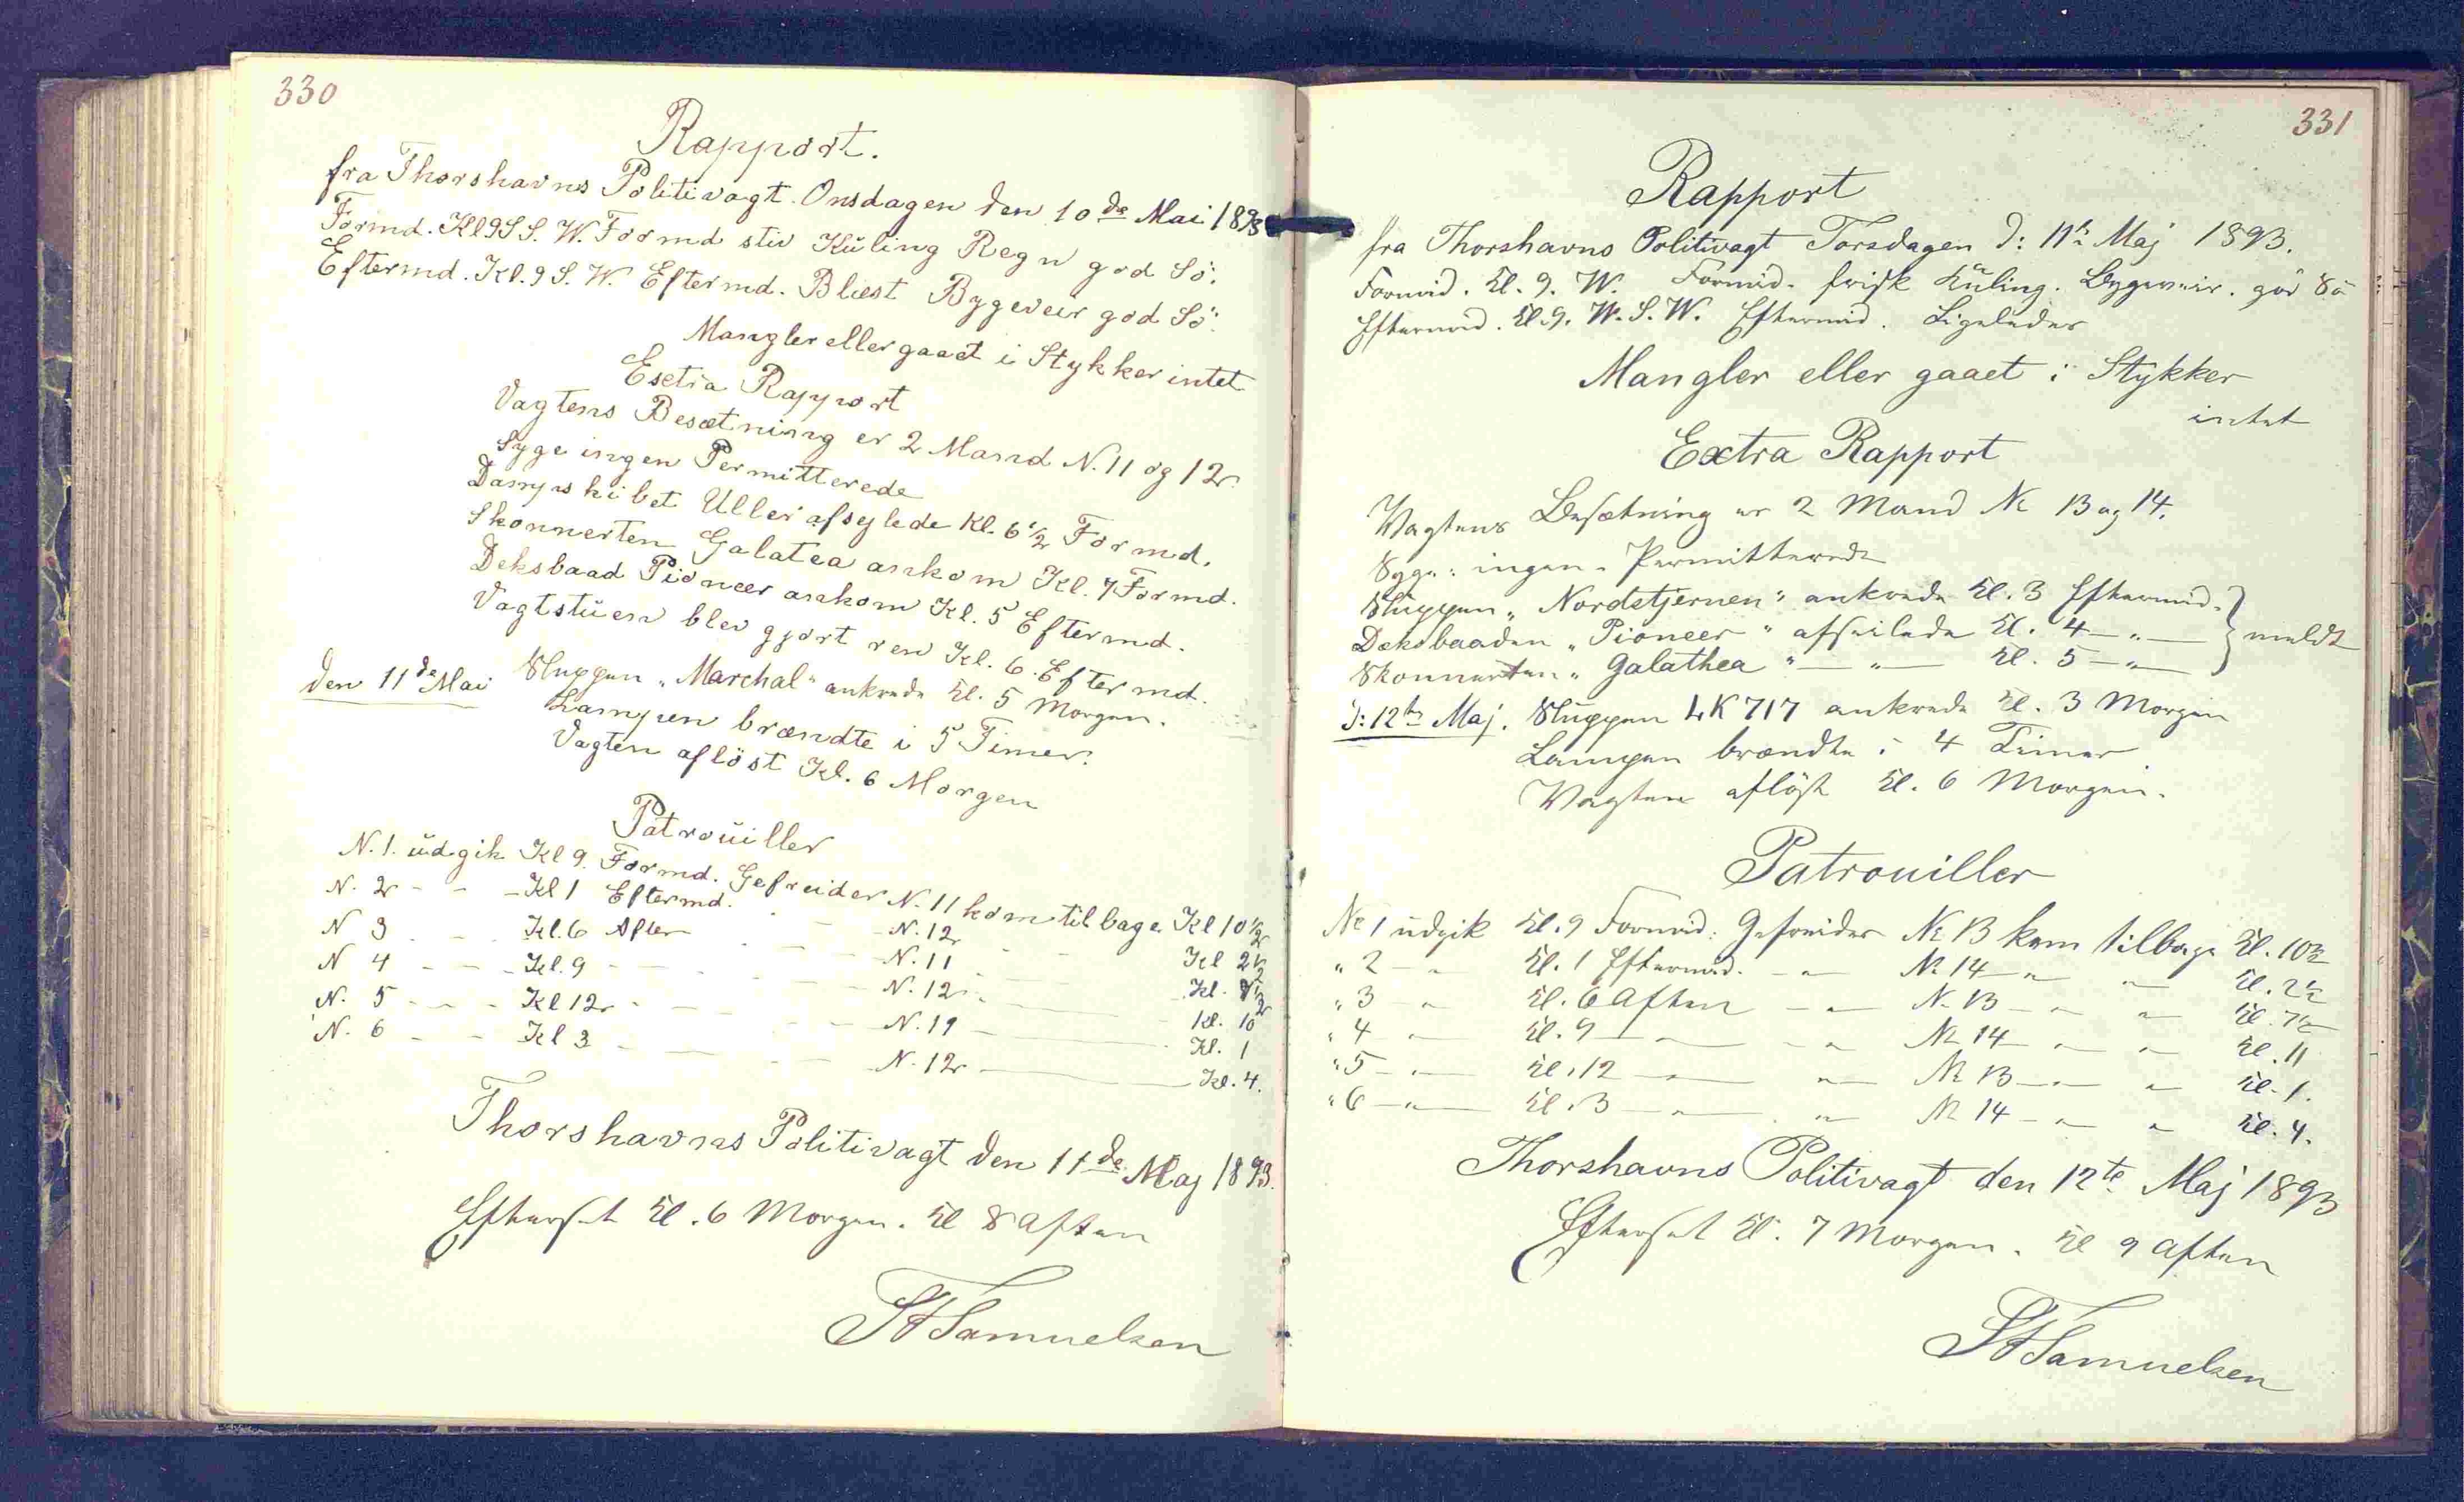 330
Rapport.
fra Thorshavns Politivagt. Onsdagen den 10de Mai 1893
Formd. Kl 9 S S. W. Formd stiv Kúling Regn god Sö.
Eftermd. Kl. 9 S. W. Eftermd. Blæst Bygeveir god Sö.
Mangler eller gaaet i Stykker intet
Exstra Rapport
Vagtens Besætning er 2 Mand N. 11 og 12.
Syge ingen Permitterede
Dampskibet Uller afsejlede Kl. 6 1/2 Formd.
Skonnerten Galatea ankom Kl. 7 Formd.
Deksbaad Pioneer ankom Kl. 5 Eftermd.
Vagtstúen blev gjort ren Kl. 6. Eftermd.
den 11de Mai Sluppen „Marchal" ankrede Kl. 5 Morgen.
Lampen brændte i 5 Timer.
Vagten aflöst Kl. 6 Morgen
Patroúiller
N. 1. údgik Kl 9. Formd. Gefreider N. 11 kom tilbage Kl 10 1/2
N. 2 - - - Kl 1 Eftermd. - - N. 12 - - Kl 2 1/2
N 3 - - Kl. 6 After - - N. 11 - - Kl. 7 1/2
N 4 - - - Kl. 9 - - - - N. 12 - - Kl. 10
N. 5 - - - Kl 12 - - - - N. 11 - - Kl. 1
N. 6 - - Kl 3 - - - - N. 12 - - Kl. 4.
Thorshavns Politivagt den 11de Maj 1893.
Efterset Kl. 6 Morgen. Kl 8 Aften
Samuelsen
331
Rapport
fra Thorshavns Politivagt Torsdagen d: 11te Maj 1893.
Formid. Kl. 9. W. Formid. frisk Kúling. Bygeveir. god Sö
Eftermid. Kl. 9. W. S. W. Eftermid. Ligeledes
Mangler eller gaaet i Stykker
intet
Extra Rapport
Vagtens Besætning er 2 Mand No 13 og 14.
Syge: ingen - Permitterede
Slúppen „Nordstjernen" ankrede Kl. 3 Eftermid. }
Deksbaaden „Pioneer" afseilede Kl. 4 — „ — } meldt
Skonnerten „Galathea" — „ — Kl. 5 — „ — }
d: 12te Maj. Slúppen LK 717 ankrede Kl. 3 Morgen
Lampen brændte i 4 Timer
Vagten aflöst Kl. 6 Morgen.
Patrouiller
No 1 údgik Kl. 9 Formid: Gefreider No 13 kom tilbage Kl. 10 1/2
„ 2 — „ Kl. 1 Eftermid. — „ — No 14 — „ — „ — Kl. 2 1/2
„ 3 — „ Kl. 6 Aften — „ — No 13 — „ — „ — Kl. 7 1/2
„ 4 — „ — Kl. 9 — „ — — „ — No 14 — „ — „ — Kl. 11
„ 5 — „ — Kl. 12 — „ — „ — No 13 — „ — „ — Kl. 1.
„ 6 — „ — Kl. 3 — „ — „ — No 14 — „ — „ — Kl. 4.
Thorshavns Politivagt den 12te Maj 1893
Efterset Kl. 7 Morgen. Kl 9 Aften
Samuelsen